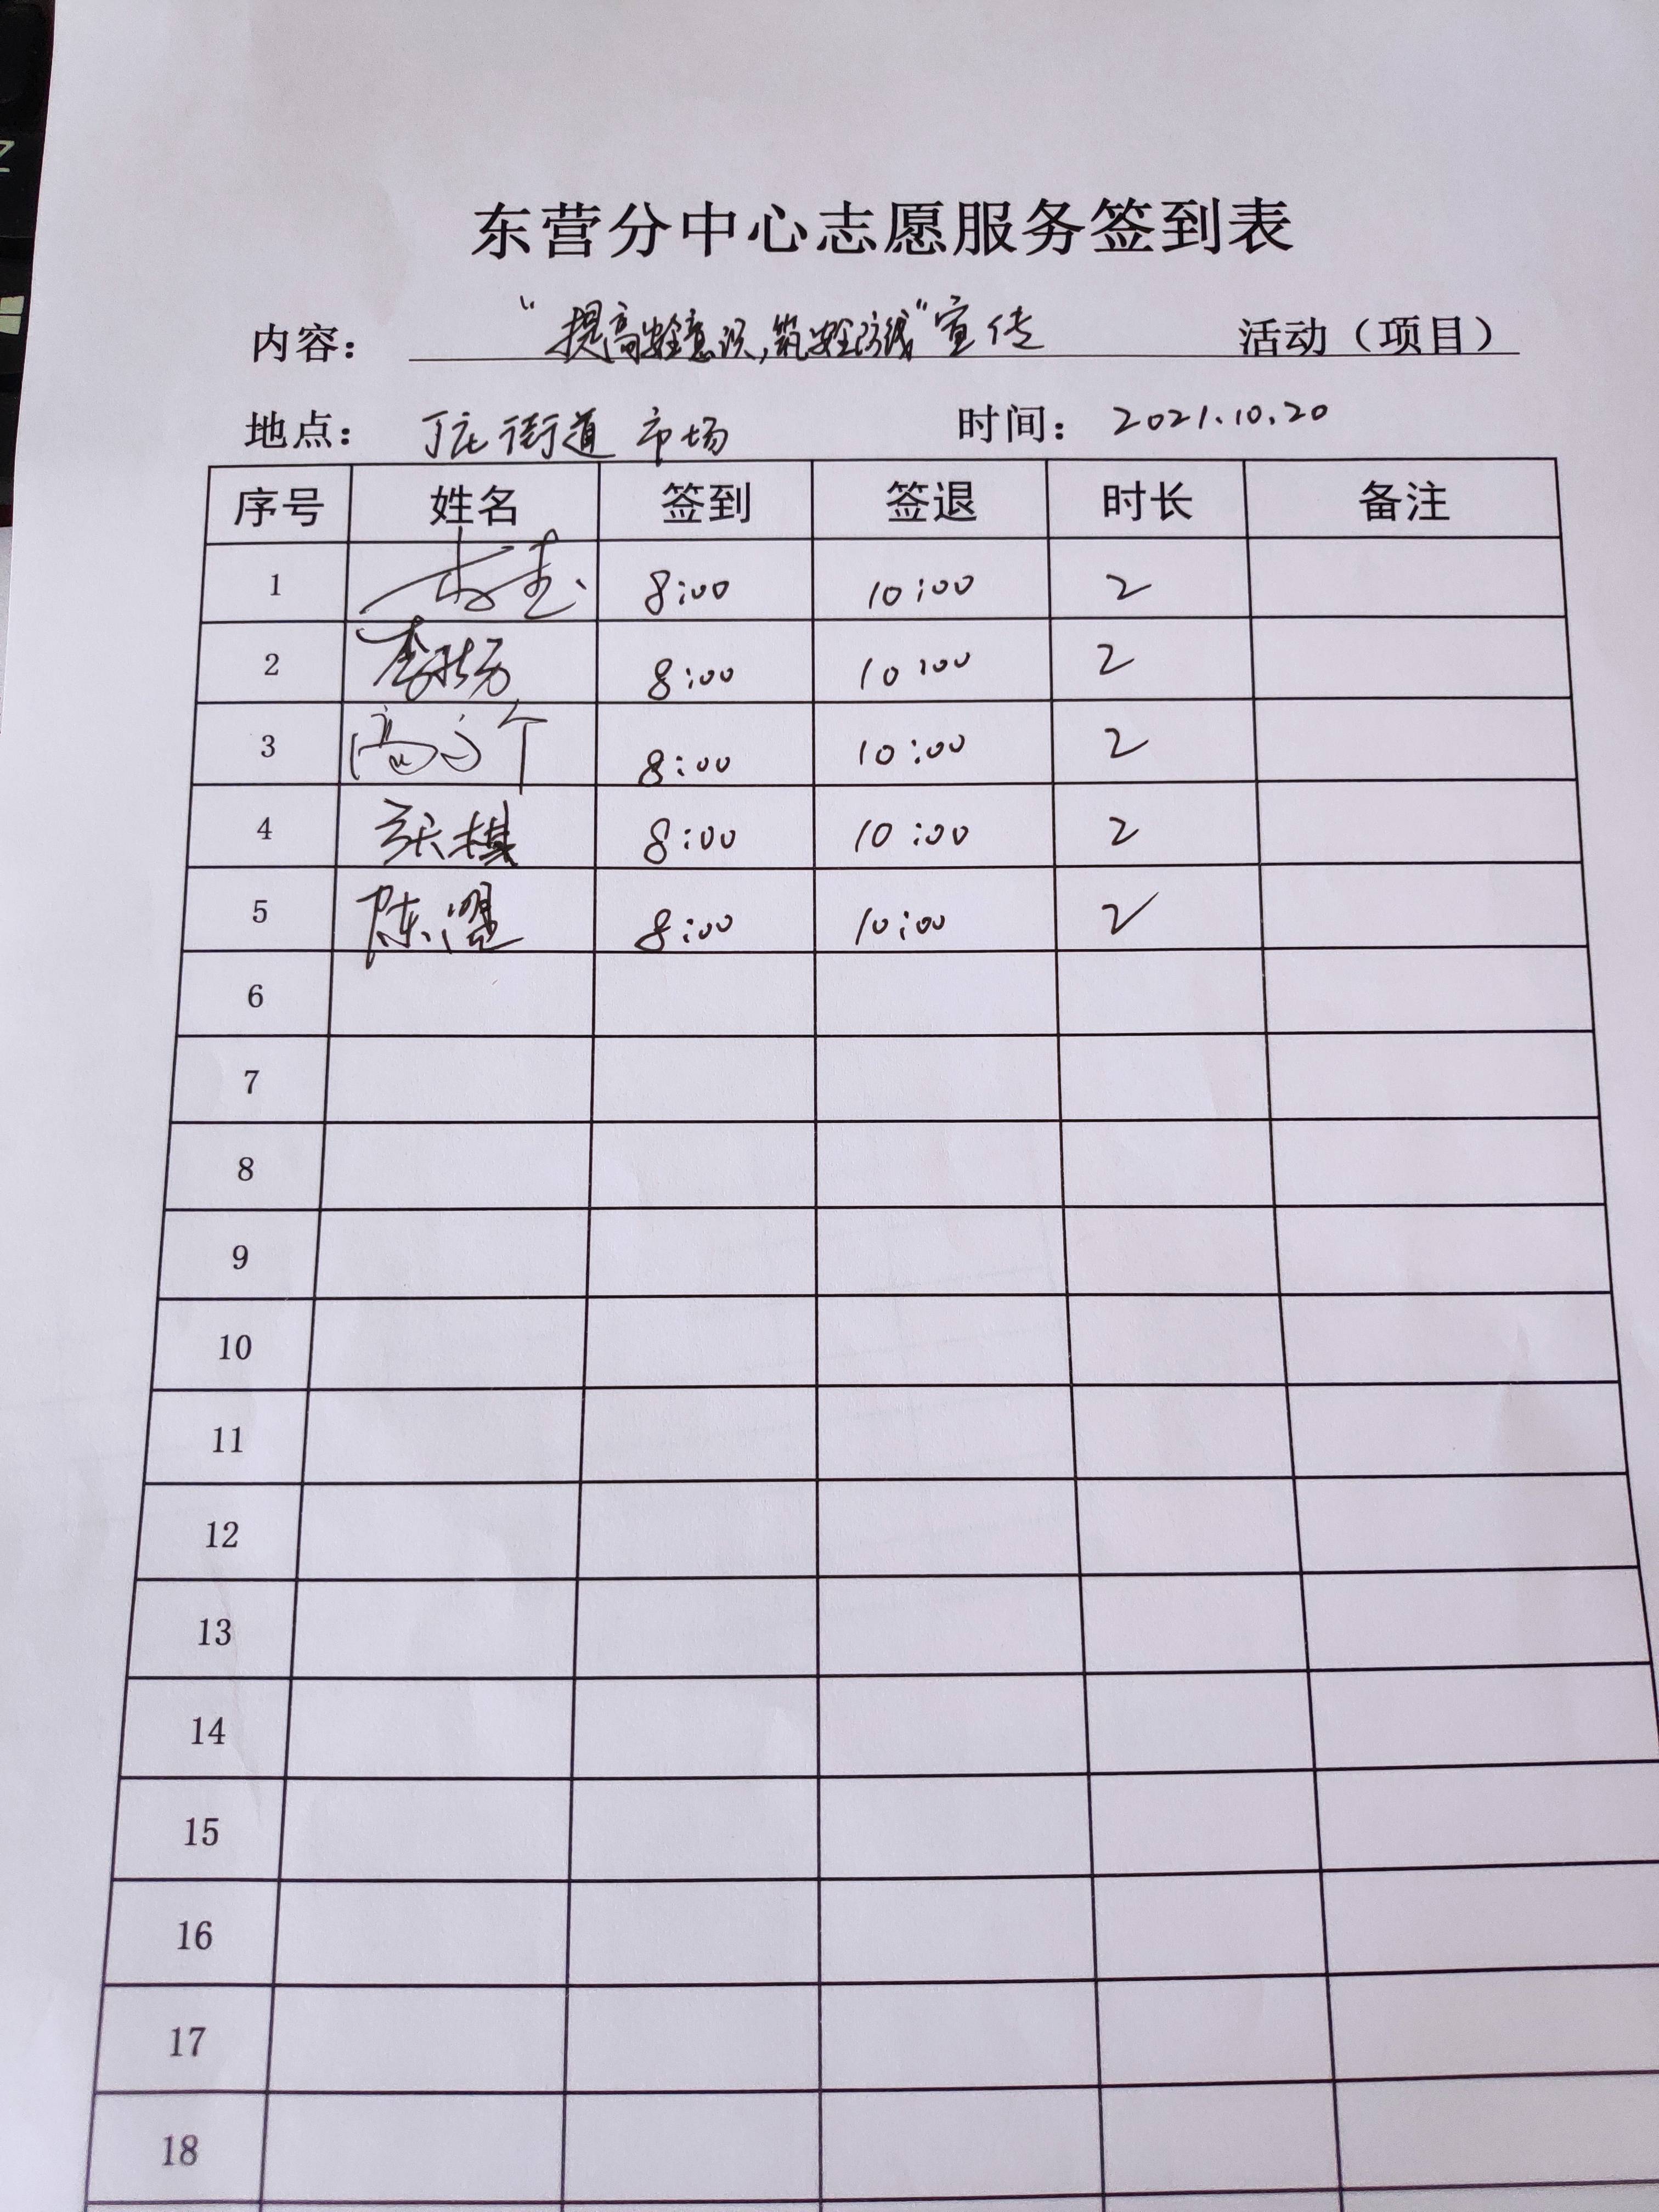 东营分中心志愿服务签到表
内容： “提高安全意识,筑安全防线”宣传 活动（项目）
地点： 丁庄街道市场 时间： 2021.10.20
序号 姓名 签到 签退 时长 备注
1 8:00 10:00 2
2 李 8:00 10:00 2
3 高 8:00 10:00 2
4 张棋 8:00 10:00 2
5 陈 8:00 10:00 2
6
7
8
9
10
11
12
13
14
15
16
17
18